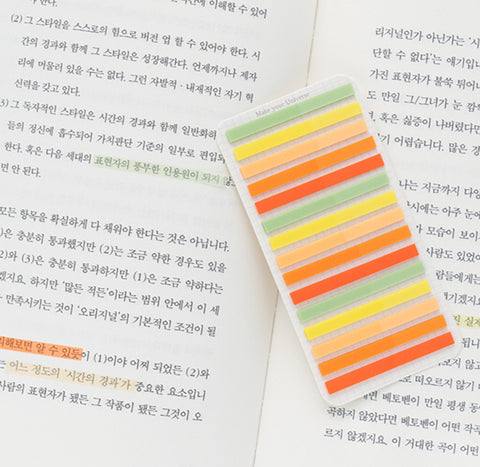 간에 이해할 수 있어
(2) 그 스타일을 스스로의 힘으로 버전 업 할 수 있어야 한다. 시
간의 경과와 함께 그 스타일은 성장해간다. 언제까지나 제자
리에 머물러 있을 수는 없다. 그런 자발적·내재적인 자기 혁
신력을 갖고 있다.
3) 그 독자적인 스타일은 시간의 경과와 함께 일반화하
들의 정신에 흡수되어 가치판단 기준의 일부로 편입되
한다. 혹은 다음 세대의 표현자의 풍부한 인용원이 되지 않
면 안 된다.
모든 항목을 확실하게 다 채워야 한다는 것은 아닙니다.
은 충분히 통과했지만 (2)는 조금 약한 경우도 있을
와 (3)은 충분히 통과하지만 (1)은 조금 약하다는
겠지요. 하지만 '많든 적든'이라는 범위 안에서 이 세
만족시키는 것이 '오리지널'의 기본적인 조건이 될
해보면 알 수 있듯이 (1)이야 어찌 되었든 (2)와
는 어느 정도의 '시간의 경과'가 중요한 요소입니
사람의 표현자가 됐든 그 작품이 됐든 그것이 오
Make your Universe
리지널인가 아닌가는 '시
단할 수 없다'는 얘기입니
가진 표현자가 불쑥 튀어나
도 만일 그/그녀가 눈 깜
혹은 싫증이 나버렸다면
기 어렵습니다. 많은 경
나는 지금까지 다양
시에는 아주 눈에
모습이 보이
사람도 있었
람들에게는
기겠지요
실제
됩니
로 떠오르지 않기
않았다면 베토벤이 만일 평생 동
곡하지 않았다면 베토벤이 어떤 작곡
르지 않겠지요. 이 거대한 곡이 어떤